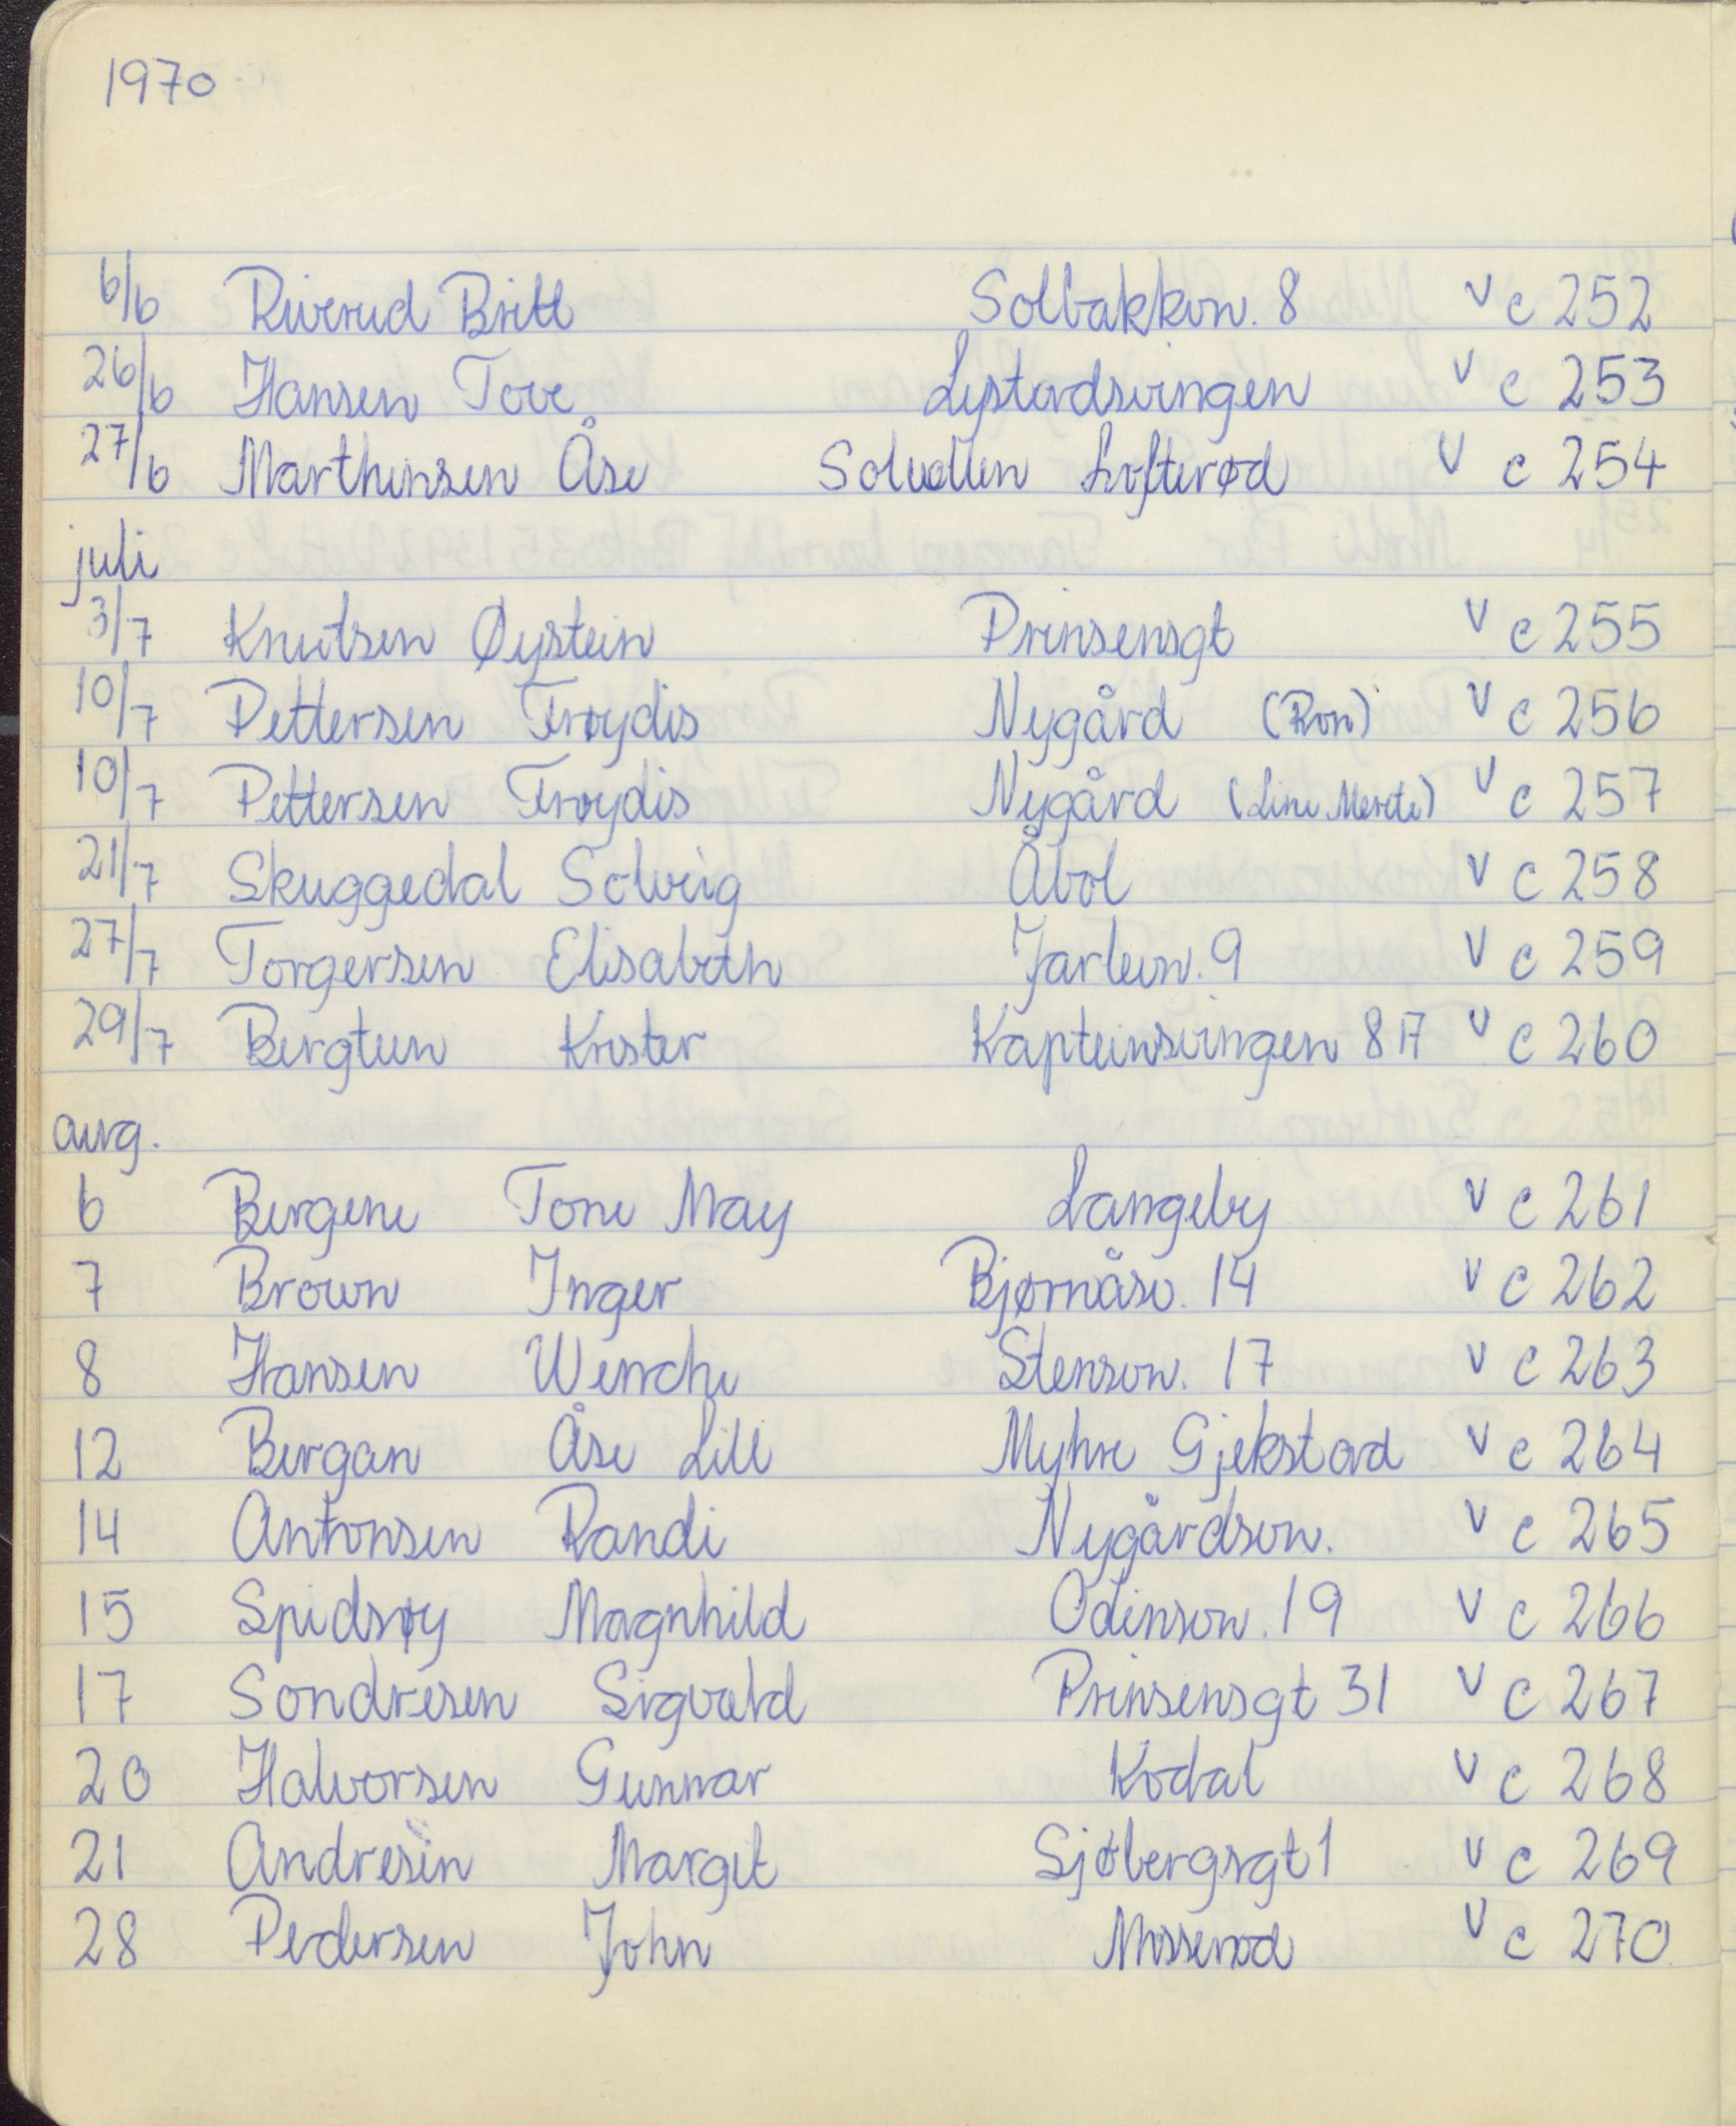 1970
6/6 Riverud Britt Solbakkvn. 8 v c 252
26/6 Hansen Tove Lystadsvingen v c 253
27/6 Marthinsen Åse Soletten Lofterød v c 254
juli
3/7 Knutsen Øystein Prinsensgt v c 255
10/7 Pettersen Frøydis Nygård (Ron) v c 256
10/7 Pettersen Frøydis Nygård (Line Merete) v c 257
21/7 Skuggedal Solveig Åbol v c 258
27/7 Torgersen Elisabeth Jarlevn. 9 v c 259
29/7 Bergteen Krister Kapteinsvingen 8 A v c 260
aug.
6 Bergene Tone May Langeby v c 261
7 Brown Inger Bjørnåsv. 14 v c 262
8 Hansen Wenche Stensvn. 17 v c 263
12 Bergan Åse Lill Myhre Gjekstad v c 264
14 Antonsen Randi Nygårdsvn. v c 265
15 Spidsøy Magnhild Odinsvn. 19 v c 266
17 Sondresen Sigvald Prinsensgt 31 v c 267
20 Halvorsen Gunnar Kodal v c 268
21 Andresen Margit Sjøbergsgt 1 v c 269
28 Pedersen John Mosserød v c 270